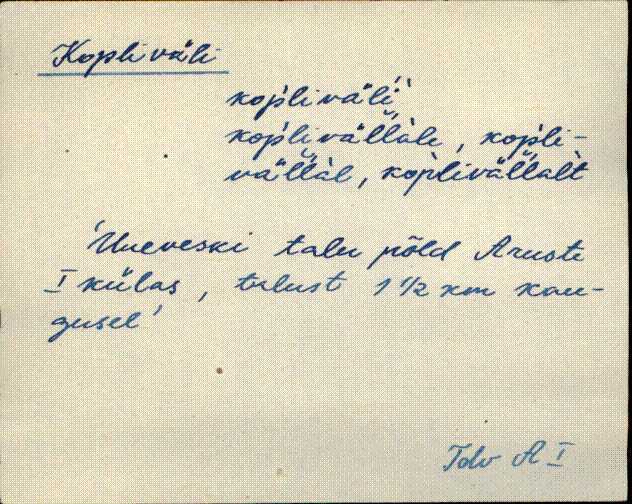 Kopliväli
kop̀liväĺì,
kop̀livä̆l̆làle, kop̀li-
vä̆l̆làl, kòplivä̆l̆làlt
'Uueveski talu põld Aruste
I külas, talust 1 1/2 km kau-
gusel'
Tdv A I